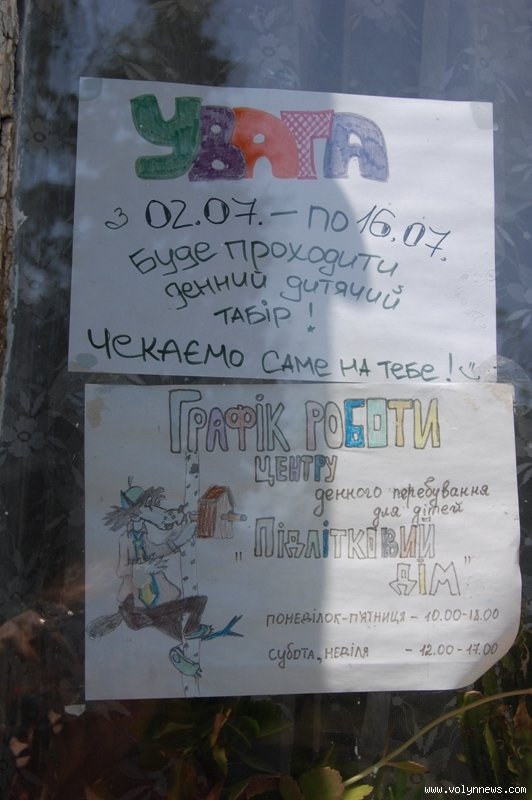 УВАГА
з 02.07. – по 16.07.
Буде проходити
денний дитячий
табір!
Чекаємо саме на тебе!
Графік роботи
центру
денного перебування
для дітей
"Підлітковий
дім"
Понеділок-п'ятниця – 10.00-18.00
Субота, неділя – 12.00-17.00
www.volynnews.com